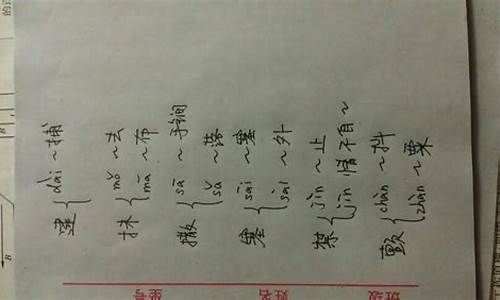 逮 { dài ~捕
抹 { mǒ ~去
mā ~布
撒 { sā ~手锏
sǎ ~落
塞 { sāi ~塞
sài ~外
禁 { jìn ~止
jīn 情不自~
颤 { chàn ~抖
zhàn ~栗
坐号
姓名
班级